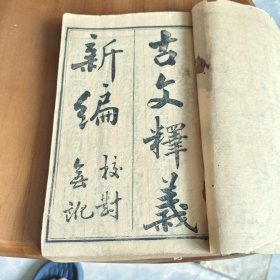 古文釋義
新编
校對
無訛